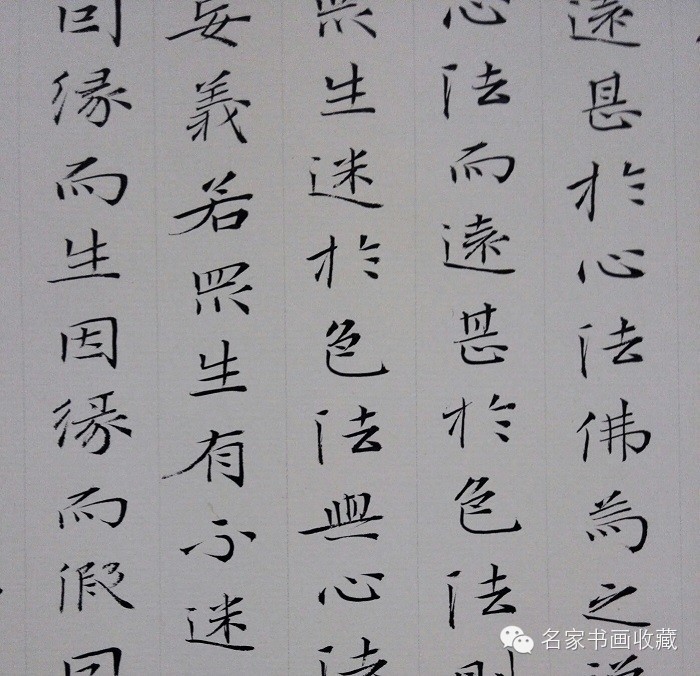 遠甚於心法佛為之說
心法而遠甚於色法則
眾生迷於色法與心法
妄義若眾生有不迷
因緣而生因緣而假因
名家书画收藏